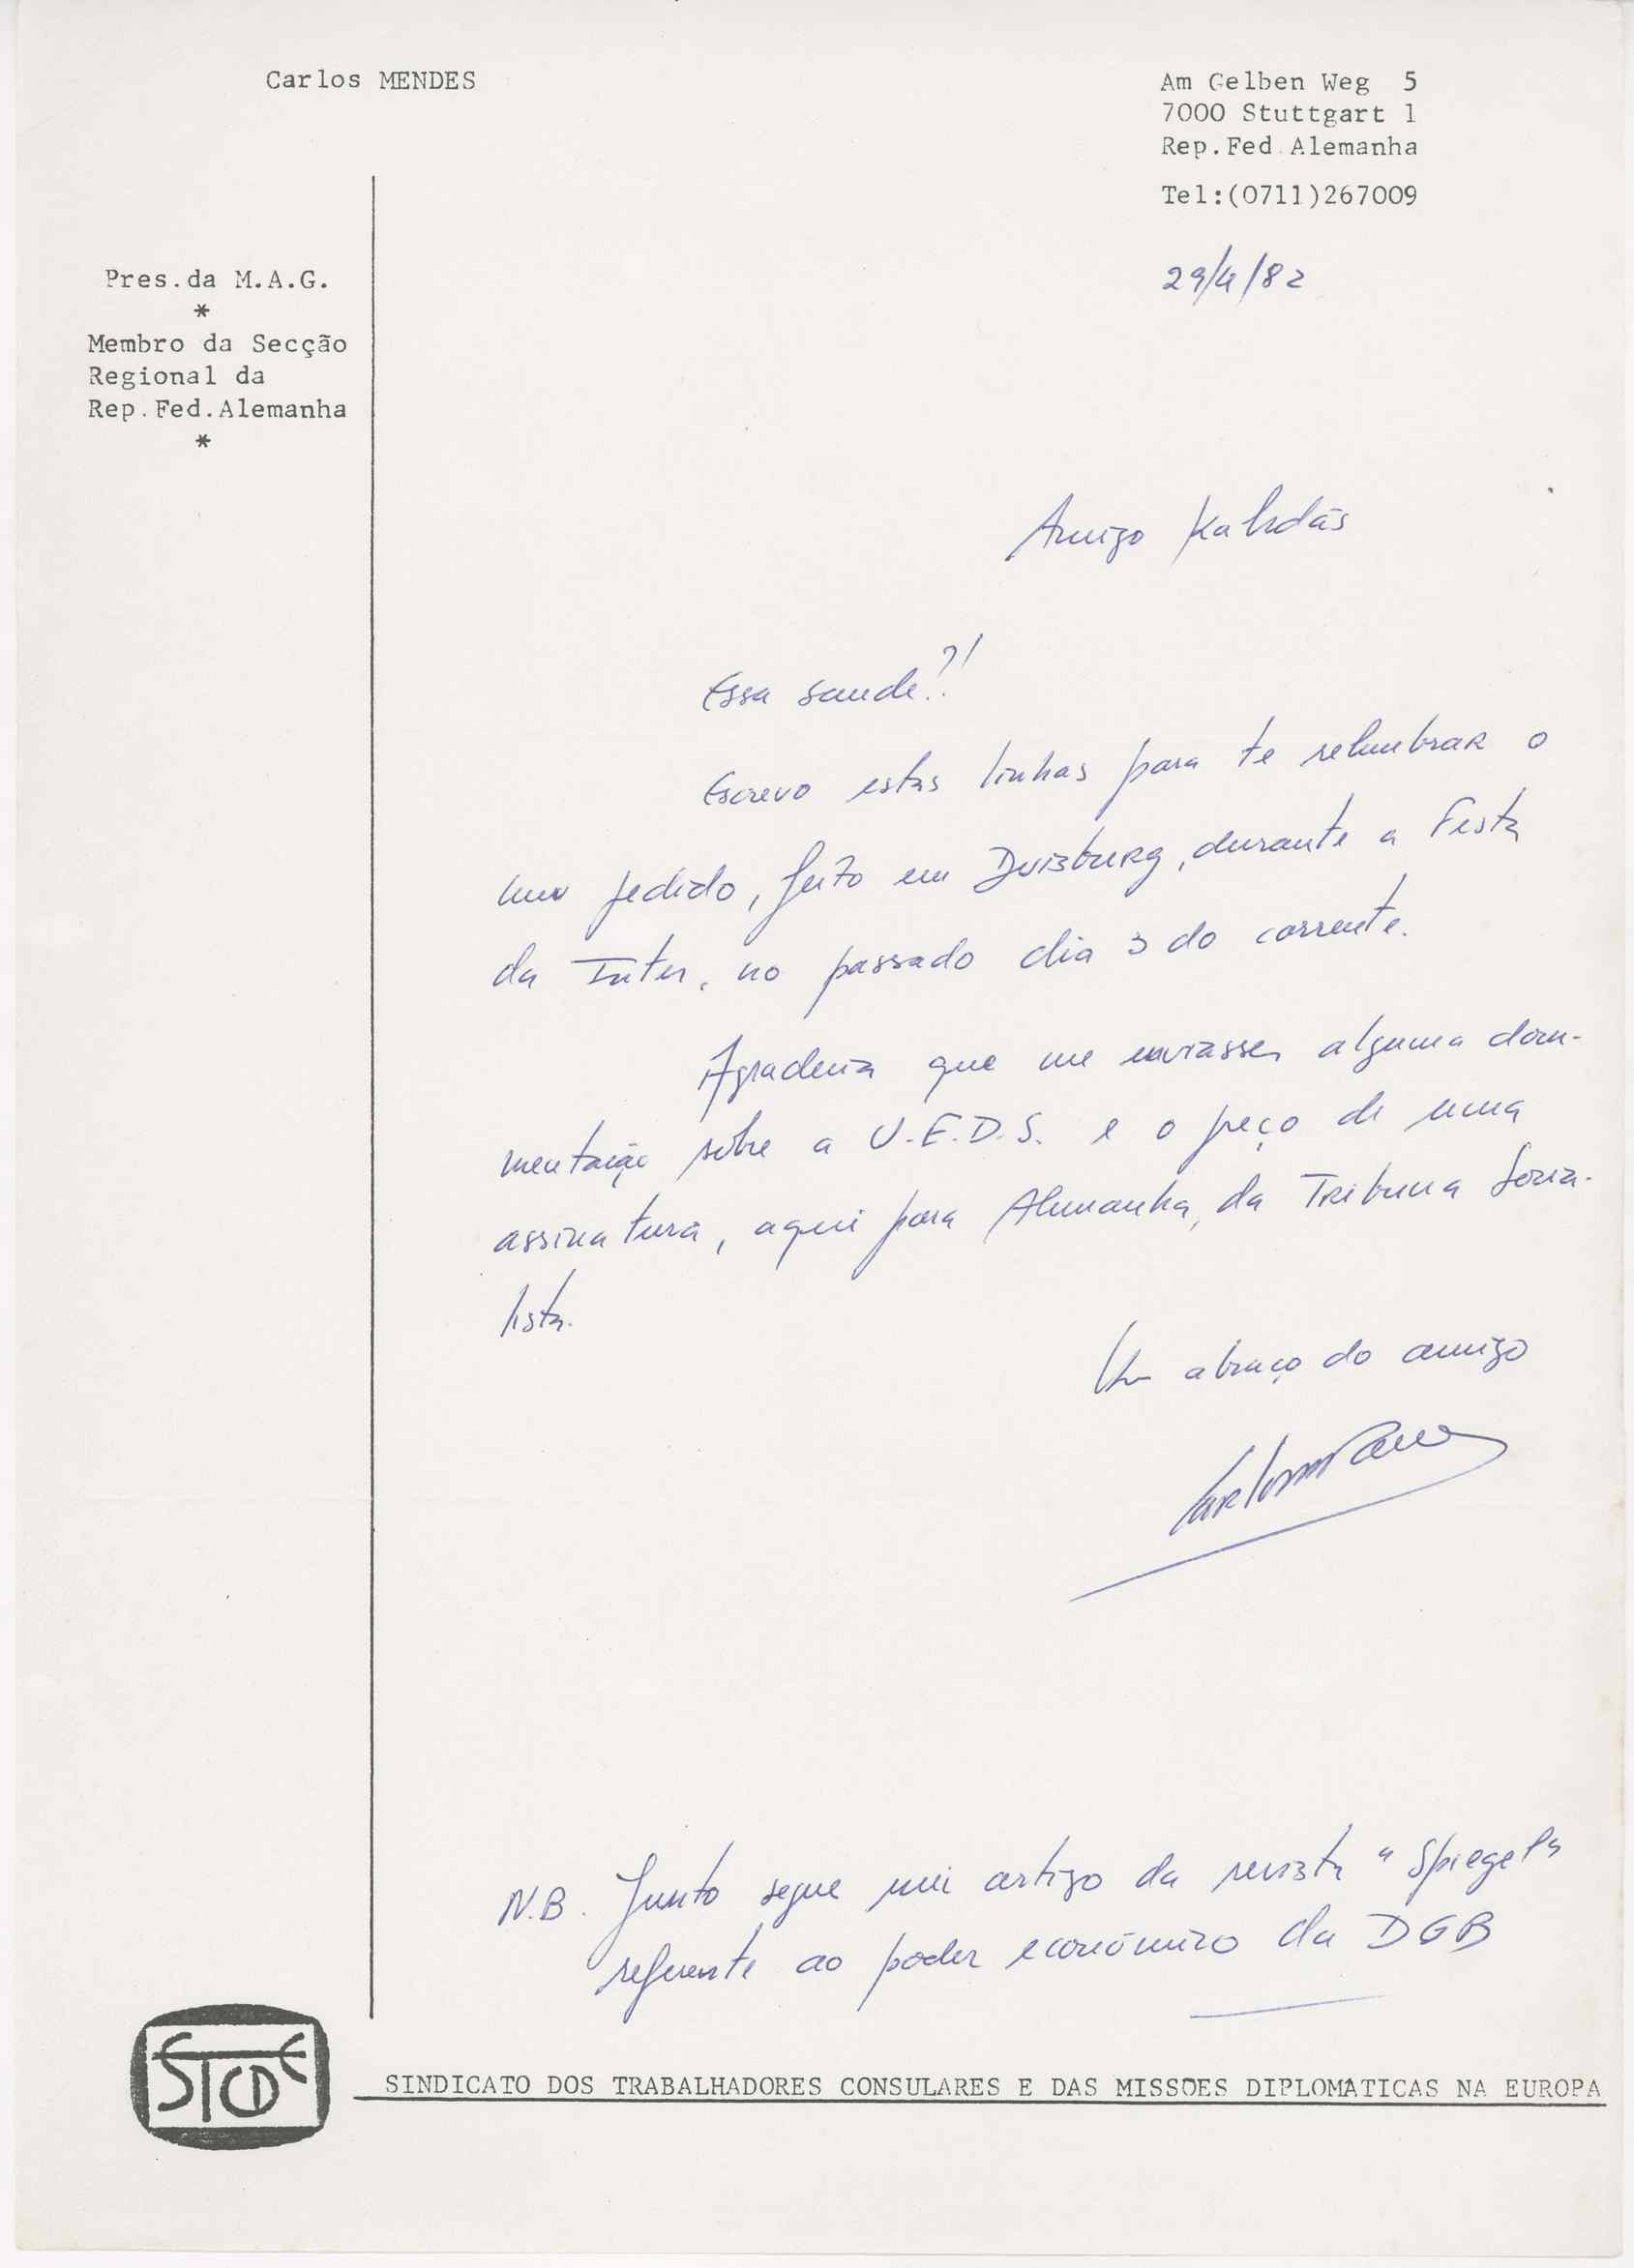 Carlos MENDES
Am Gelben Weg 5
7000 Stuttgart 1
Rep.Fed.Alemanha
Tel:(0711)267009
29/4/82
Pres.da M.A.G.
*
Membro da Secção
Regional da
Rep.Fed.Alemanha
*
Amigo Kalidás
Essa saude?!
Escrevo estas linhas para te relembrar o
meu pedido, feito em Duisburg, durante a Festa
da Inter, no passado dia 3 do corrente.
Agradecia que me enviasses alguma docu-
mentação sôbre a U.E.D.S. e o preço de uma
assinatura, aqui para Alemanha, da Tribuna Socia-
lista.
Um abraço do amigo
N.B. Junto segue um artigo da revista "Spiegel"
referente ao poder económico da DGB
STCDE
SINDICATO DOS TRABALHADORES CONSULARES E DAS MISSÕES DIPLOMÁTICAS NA EUROPA